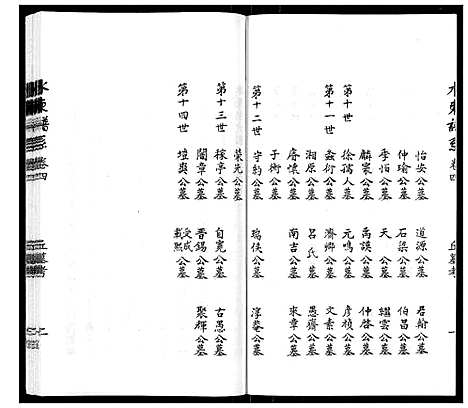 水東譜系 卷四
丘墓考
一
怡安公墓 道源公墓 君翰公墓
仲瑜公墓 石梁公墓 伯昌公墓
季怕公墓 天 公墓 繼雲公墓
麟寰公墓 禹誤公墓 仲啓公墓
第十世 徐孺人墓 元鳴公墓 彦楨公墓
第十一世 蠡衍公墓 濟卿公墓 文素公墓
湘原公墓 呂氏墓 愚齋公墓
睿懷公墓 南吉公墓 來章公墓
于術公墓
第十二世 守豹公墓 瑞侯公墓 淳菴公墓
榮先公墓
第十三世 稼亭公墓 自寬公墓 古愚公墓
闇章公墓 晋錫公墓 聚輝公墓
第十四世 愷與公墓 受成 載熙公墓
水東譜系 卷四
丘墓考